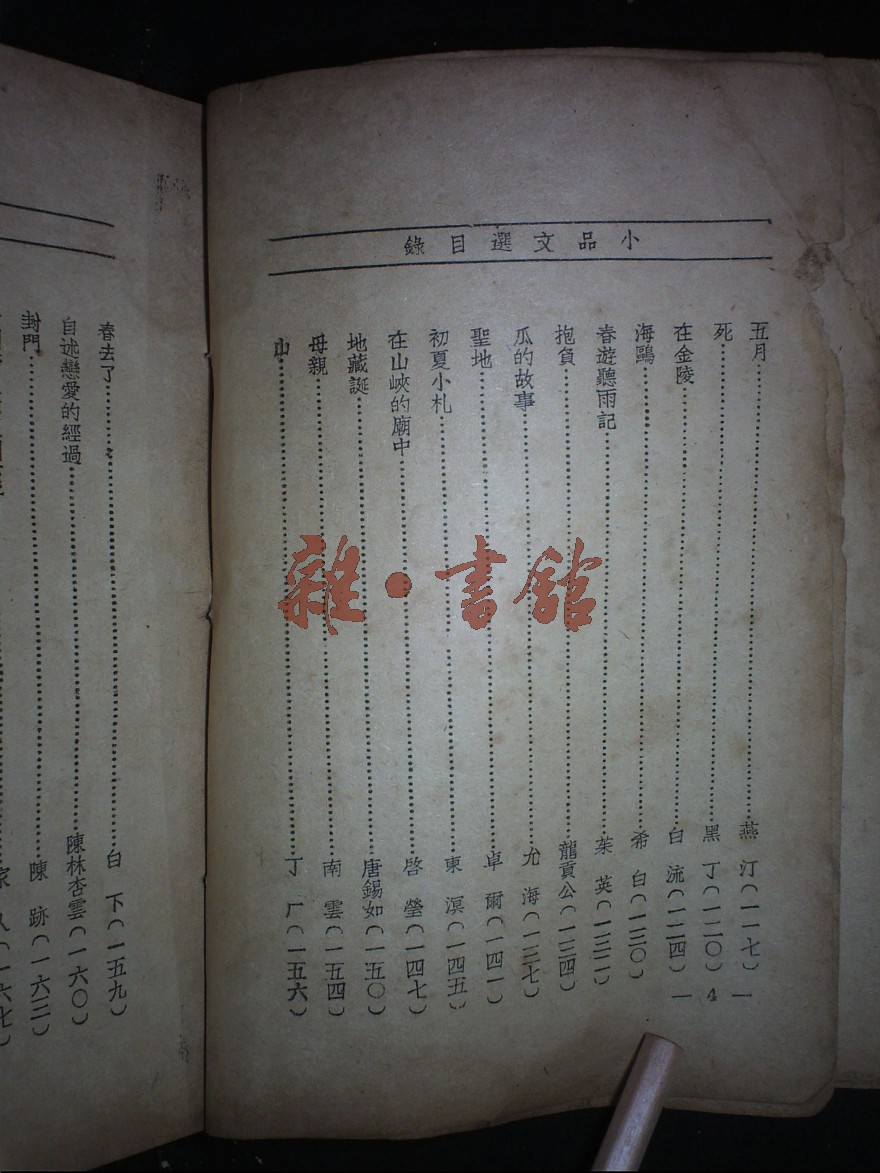 小品文選目錄
五月……燕汀(一一七)
死……黑丁(一二〇)
在金陵……白流(一二四)
海鷗……希白(一三〇)
春遊聽雨記……茱英(一三二)
抱負……龍貢公(一三四)
瓜的故事……允海(一三七)
聖地……卓爾(一四一)
初夏小札……東溟(一四五)
在山峽的廟中……啓瑩(一四七)
地藏誕……唐錫如(一五〇)
母親……南雲(一五四)
山……丁厂(一五六)
— 4 —
春去了……白下(一五九)
自述戀愛的經過……陳林杏雲(一六〇)
封門……陳跡(一六三)
人(一六七)
雜·書館